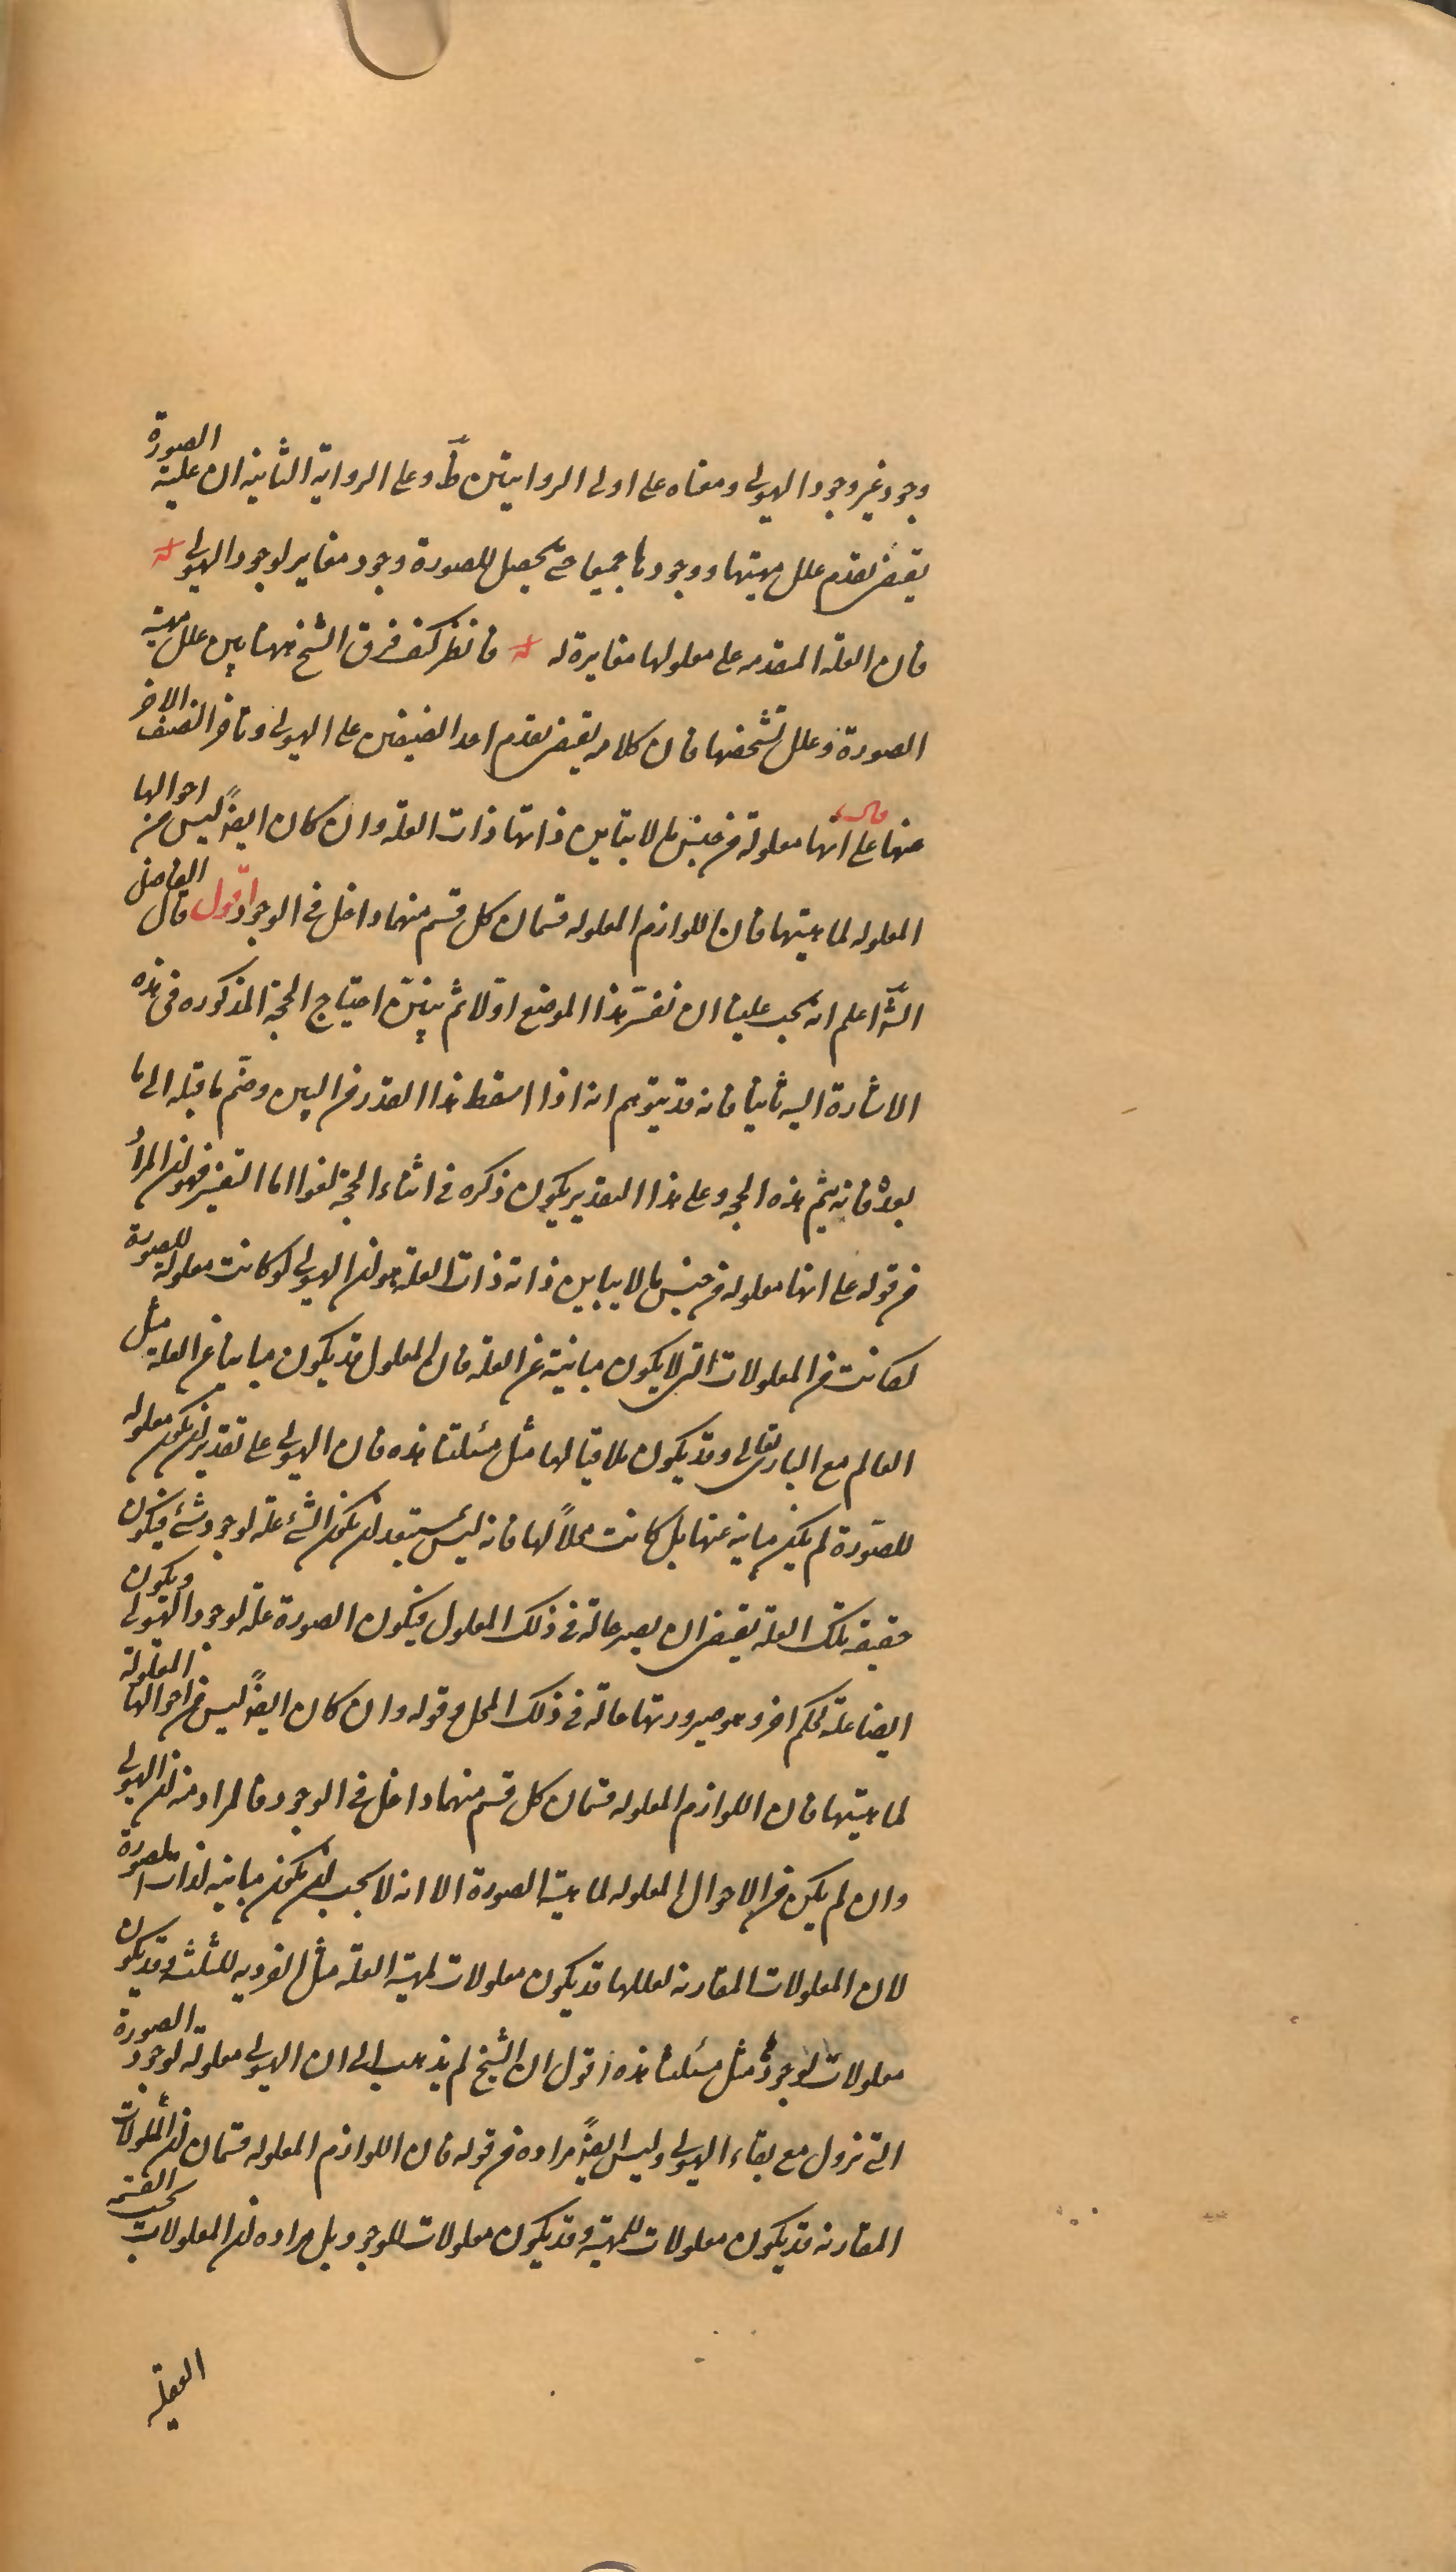 وجود غير وجود الهيولى ومعناه على اولى الروايتين ظَ وعلى الرواية الثانيه ان علية الصورة
يقتضى تقدم علل مهيتها ووجودها جميعا حتى يحصل للصورة وجود مغاير لوجود الهيولى
فان العلة المتقدمه على معلولها مغايرة له فانظر كيف فرق الشيخ ههنا بين علل مهية
الصورة وعلل تشخصها فان كلامه يقتضى تقدم احد الصنفين على الهيولى وتاخر الصنف الاخر
عنها قال على انها معلولة من جنس ما لا يباين ذاتها ذات العلة وان كان ايضًا ليس من احوالها
المعلوله لماهيتها فان اللوازم المعلوله قسمان كل قسم منهما داخل فى الوجود اقول قال الفاضل
الشَ اعلم انه يجب علينا ان نفسّر هذا الموضع اولا ثم نبيّن احتياج الحجة المذكوره فى هذه
الاشارة اليه ثانيا فانه قد يتوهم انه اذا اسقط هذا القدر من البين وضمّ ما قبله الى ما
بعده فانه يتم هذه الحجه وعلى هذا التقدير يكون ذكره فى اثناء الحجة لغوا اما التفسير فهو ان المراد
من قوله على انها معلوله من جنس ما لا يباين ذاته ذات العلة هو ان الهيولى لو كانت معلولة للصورة
لكانت من المعلولات التى لا يكون مباينة عن العلة فان المعلول قد يكون مباينا عن العلة مثل
العالم مع البارى تعالى وقد يكون ملاقيا لها مثل مسئلتنا هذه فان الهيولى على تقدير ان يكون معلوله
للصّورة لم يكن مباينه عنها بل كانت محلاً لها فانه ليس بمستبعد ان يكون الشئ علة لوجود شئ فيكون
حقيقه تلك العلة يقتضى ان يصير حالة فى ذلك المعلول فيكون الصورة علة لوجود الهيولى ويكون
ايضا علة لحكم اخر وهو صيرورتها حالة فى ذلك المحل وقوله وان كان ايضًا ليس من احوالها المعلولة
لماهيتها فان اللوازم المعلوله قسمان كل قسم منهما داخل فى الوجود فالمراد منه ان الهيولى
وان لم يكن من الاحوال المعلوله لماهية الصورة الا انه لا يجب ان يكون مباينه لذات الصورة
لان المعلولات المقارنه لعللها قد يكون معلولات لمهية العلة مثل الفرديه للثلثه وقد يكون
معلولات لوجودها مثل مسئلتنا هذه اقول ان الشيخ لم يذهب الى ان الهيولى معلولة لوجود الصورة
التى تزول مع بقاء الهيولى وليس ايضًا مراده من قوله فان اللوازم المعلوله قسمان ان المعلولات
المقارنه قد يكون معلولات للمهية وقد يكون معلولات للوجود بل مراده ان المعلولات بحسب القسمه
العقلية